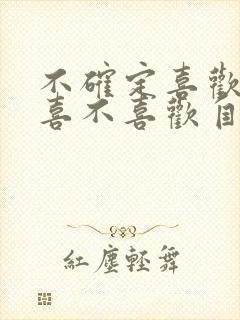 不確定喜歡
喜不喜歡
紅塵輕舞